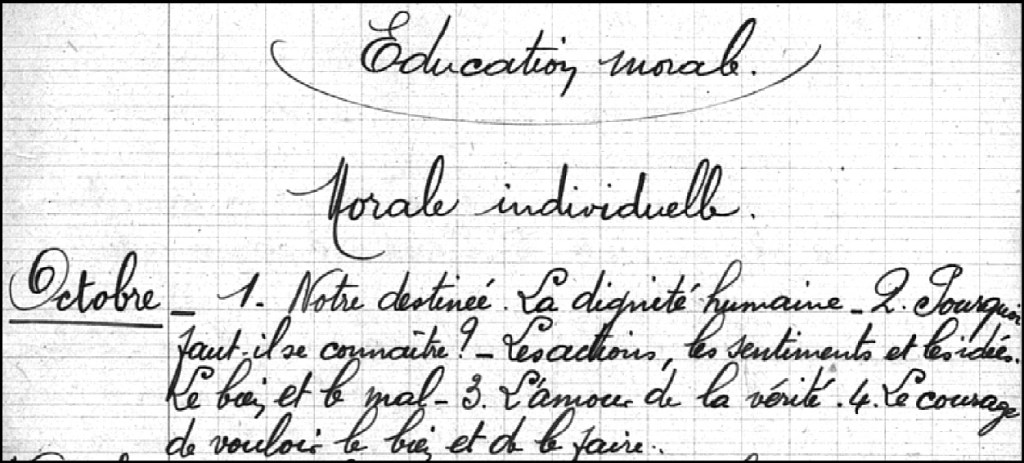 Education morale.
Morale individuelle.
Octobre _ 1. Notre destinée. La dignité humaine _ 2. Pourquoi
faut-il se connaître ? _ Les actions, les sentiments et les idées.
Le bien et le mal _ 3. L'amour de la vérité. 4. Le courage
de vouloir le bien et de le faire.